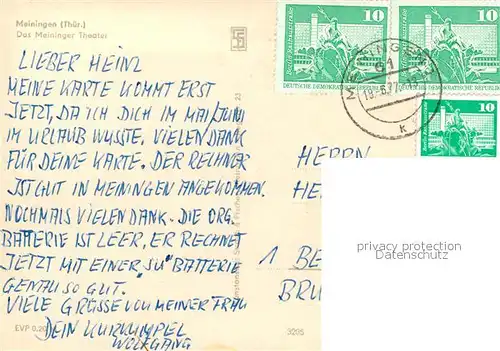 Meiningen (Thür.)
Das Meininger Theater
LIEBER HEINZ
MEINE KARTE KOMMT ERST
JETZT, DA ICH DICH IM MAI/JUNI
IM URLAUB WUSSTE. VIELEN DANK
FÜR DEINE KARTE. DER RECHNER
IST GUT IN MEININGEN ANGEKOMMEN.
NOCHMALS VIELEN DANK. DIE ORG.
BATTERIE IST LEER, ER RECHNET
JETZT MIT EINER "SU" BATTERIE
GENAU SO GUT.
VIELE GRÜSSE VON MEINER FRAU
DEIN KURKUMPEL
WOLFGANG
EVP 0,20
3205
10
Berlin, Rathausstraße
DEUTSCHE DEMOKRATISCHE REPUBLIK
10
Berlin, Rathausstraße
DEUTSCHE DEMOKRATISCHE REPUBLIK
10
MEININGEN 1
61
k
HERRN
HE
1 BE
BRU
privacy protection
Datenschutz